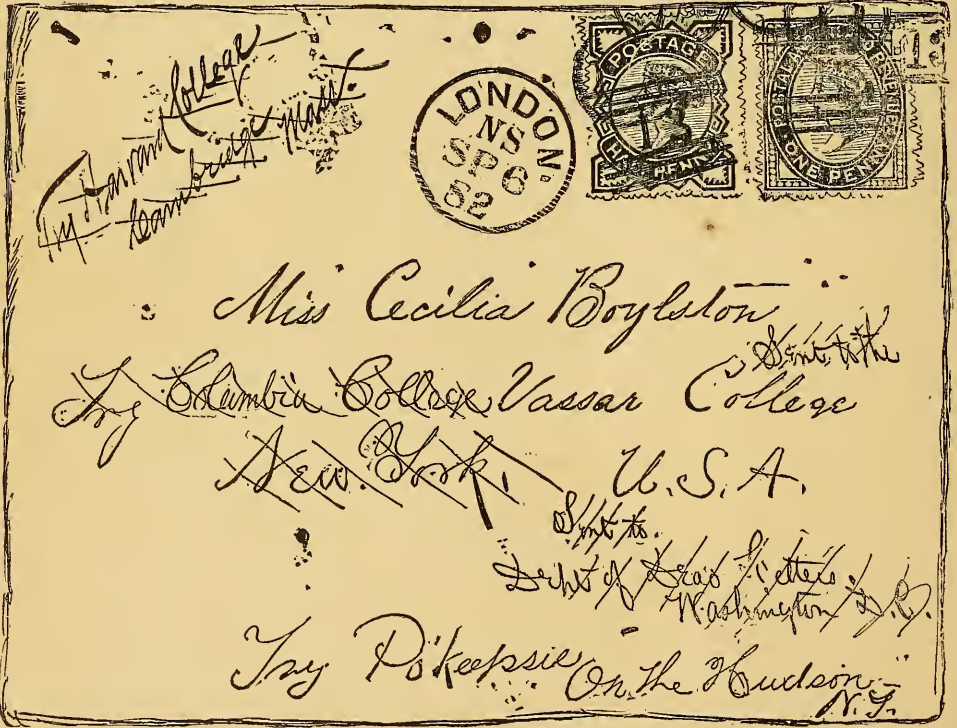 Try Harvard College
Cambridge Mass.
LONDON
NS
SP 6
82
POSTAGE
HALF PENNY
ONE PENNY
Miss Cecilia Boylston
Sent to the
Try Columbia College Vassar College
New York. U.S.A.
Sent to.
Dept of Dead Letters.
Washington D.C.
Try Po'keepsie
On the Hudson
N.Y.